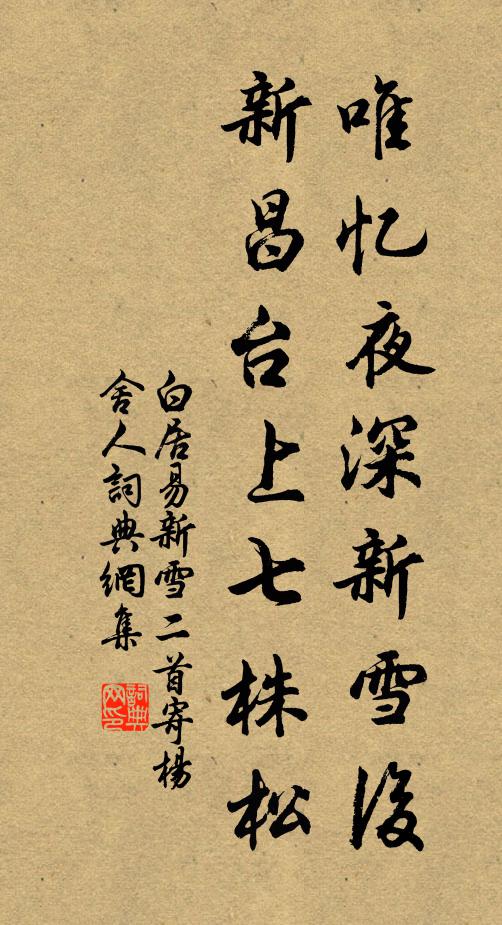 唯忆夜深新雪後
新昌台上七株松
白居易新雪二首寄楊
舍人詞典網集
詞典
网印